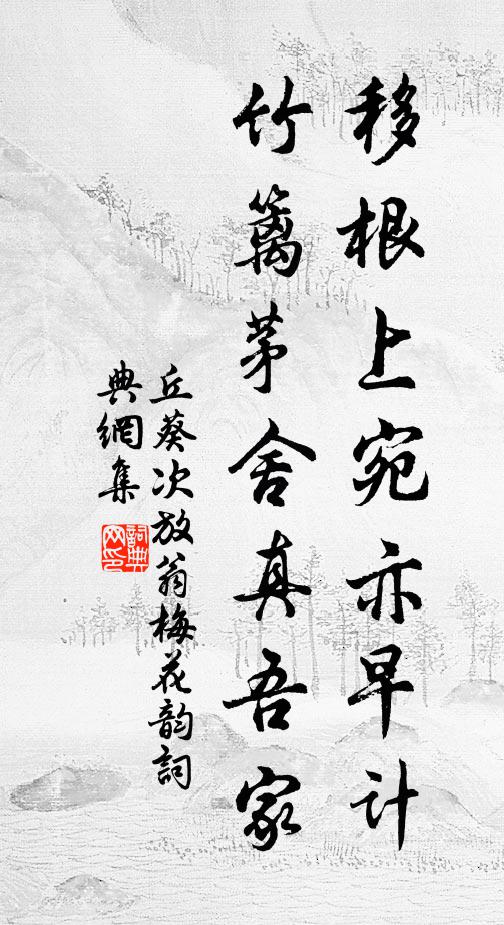 移根上宛亦早计
竹篱茅舍真吾家
丘葵次放翁梅花韵词
典網集
詞典
网印